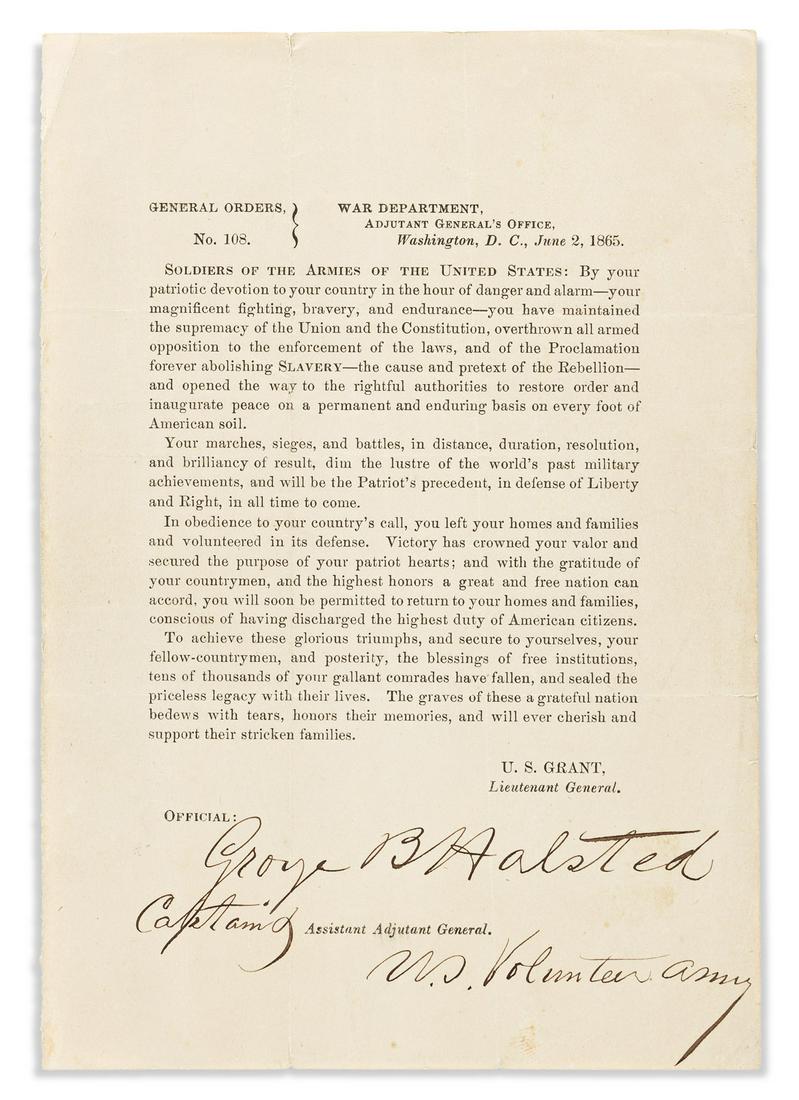 GENERAL ORDERS, } WAR DEPARTMENT,
ADJUTANT GENERAL'S OFFICE,
No. 108. Washington, D. C., June 2, 1865.
SOLDIERS OF THE ARMIES OF THE UNITED STATES: By your
patriotic devotion to your country in the hour of danger and alarm—your
magnificent fighting, bravery, and endurance—you have maintained
the supremacy of the Union and the Constitution, overthrown all armed
opposition to the enforcement of the laws, and of the Proclamation
forever abolishing SLAVERY—the cause and pretext of the Rebellion—
and opened the way to the rightful authorities to restore order and
inaugurate peace on a permanent and enduring basis on every foot of
American soil.
Your marches, sieges, and battles, in distance, duration, resolution,
and brilliancy of result, dim the lustre of the world's past military
achievements, and will be the Patriot's precedent, in defense of Liberty
and Right, in all time to come.
In obedience to your country's call, you left your homes and families
and volunteered in its defense. Victory has crowned your valor and
secured the purpose of your patriot hearts; and with the gratitude of
your countrymen, and the highest honors a great and free nation can
accord, you will soon be permitted to return to your homes and families,
conscious of having discharged the highest duty of American citizens.
To achieve these glorious triumphs, and secure to yourselves, your
fellow-countrymen, and posterity, the blessings of free institutions,
tens of thousands of your gallant comrades have fallen, and sealed the
priceless legacy with their lives. The graves of these a grateful nation
bedews with tears, honors their memories, and will ever cherish and
support their stricken families.
U. S. GRANT,
Lieutenant General.
OFFICIAL:
George B Halsted
Captain & Assistant Adjutant General.
U.S. Volunteer Army